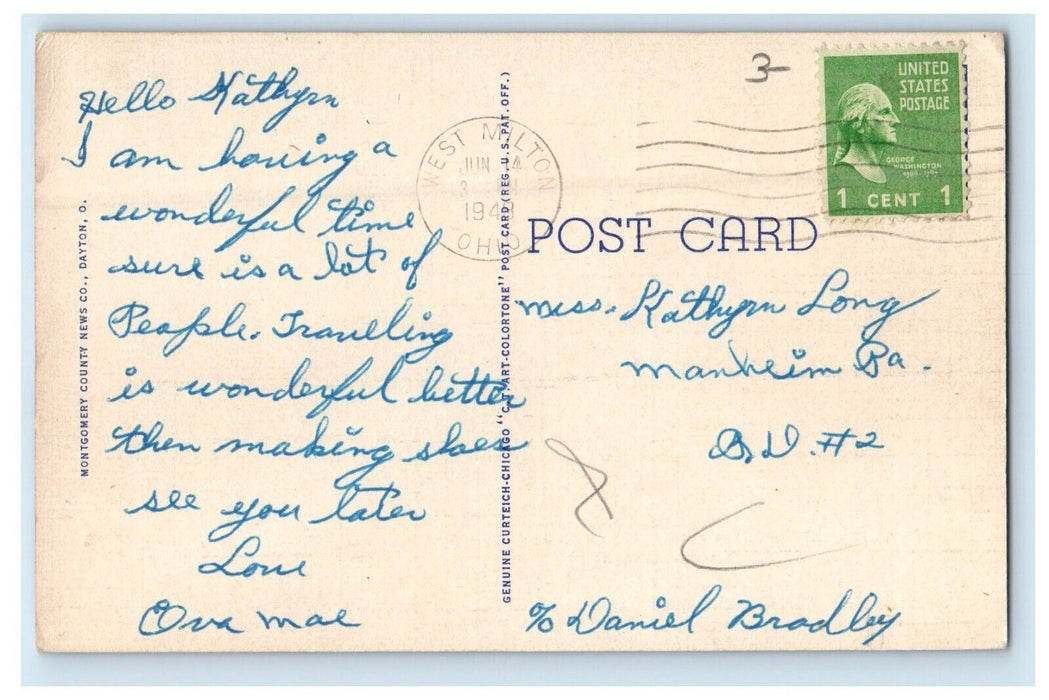 Hello Kathyrn
I am having a
wonderful time
sure is a lot of
People. Traveling
is wonderful better
then making shoes
see you later
Love
Ova Mae
MONTGOMERY COUNTY NEWS CO., DAYTON, O.
GENUINE CURTEICH-CHICAGO "C.T. ART-COLORTONE" POST CARD (REG. U.S. PAT. OFF.)
WEST MILTON
JUN 14
194
OHIO
3-
UNITED
STATES
POSTAGE
GEORGE
WASHINGTON
1 CENT 1
POST CARD
Miss. Kathyrn Long
Manheim Pa.
R.D. #2
% Daniel Bradley